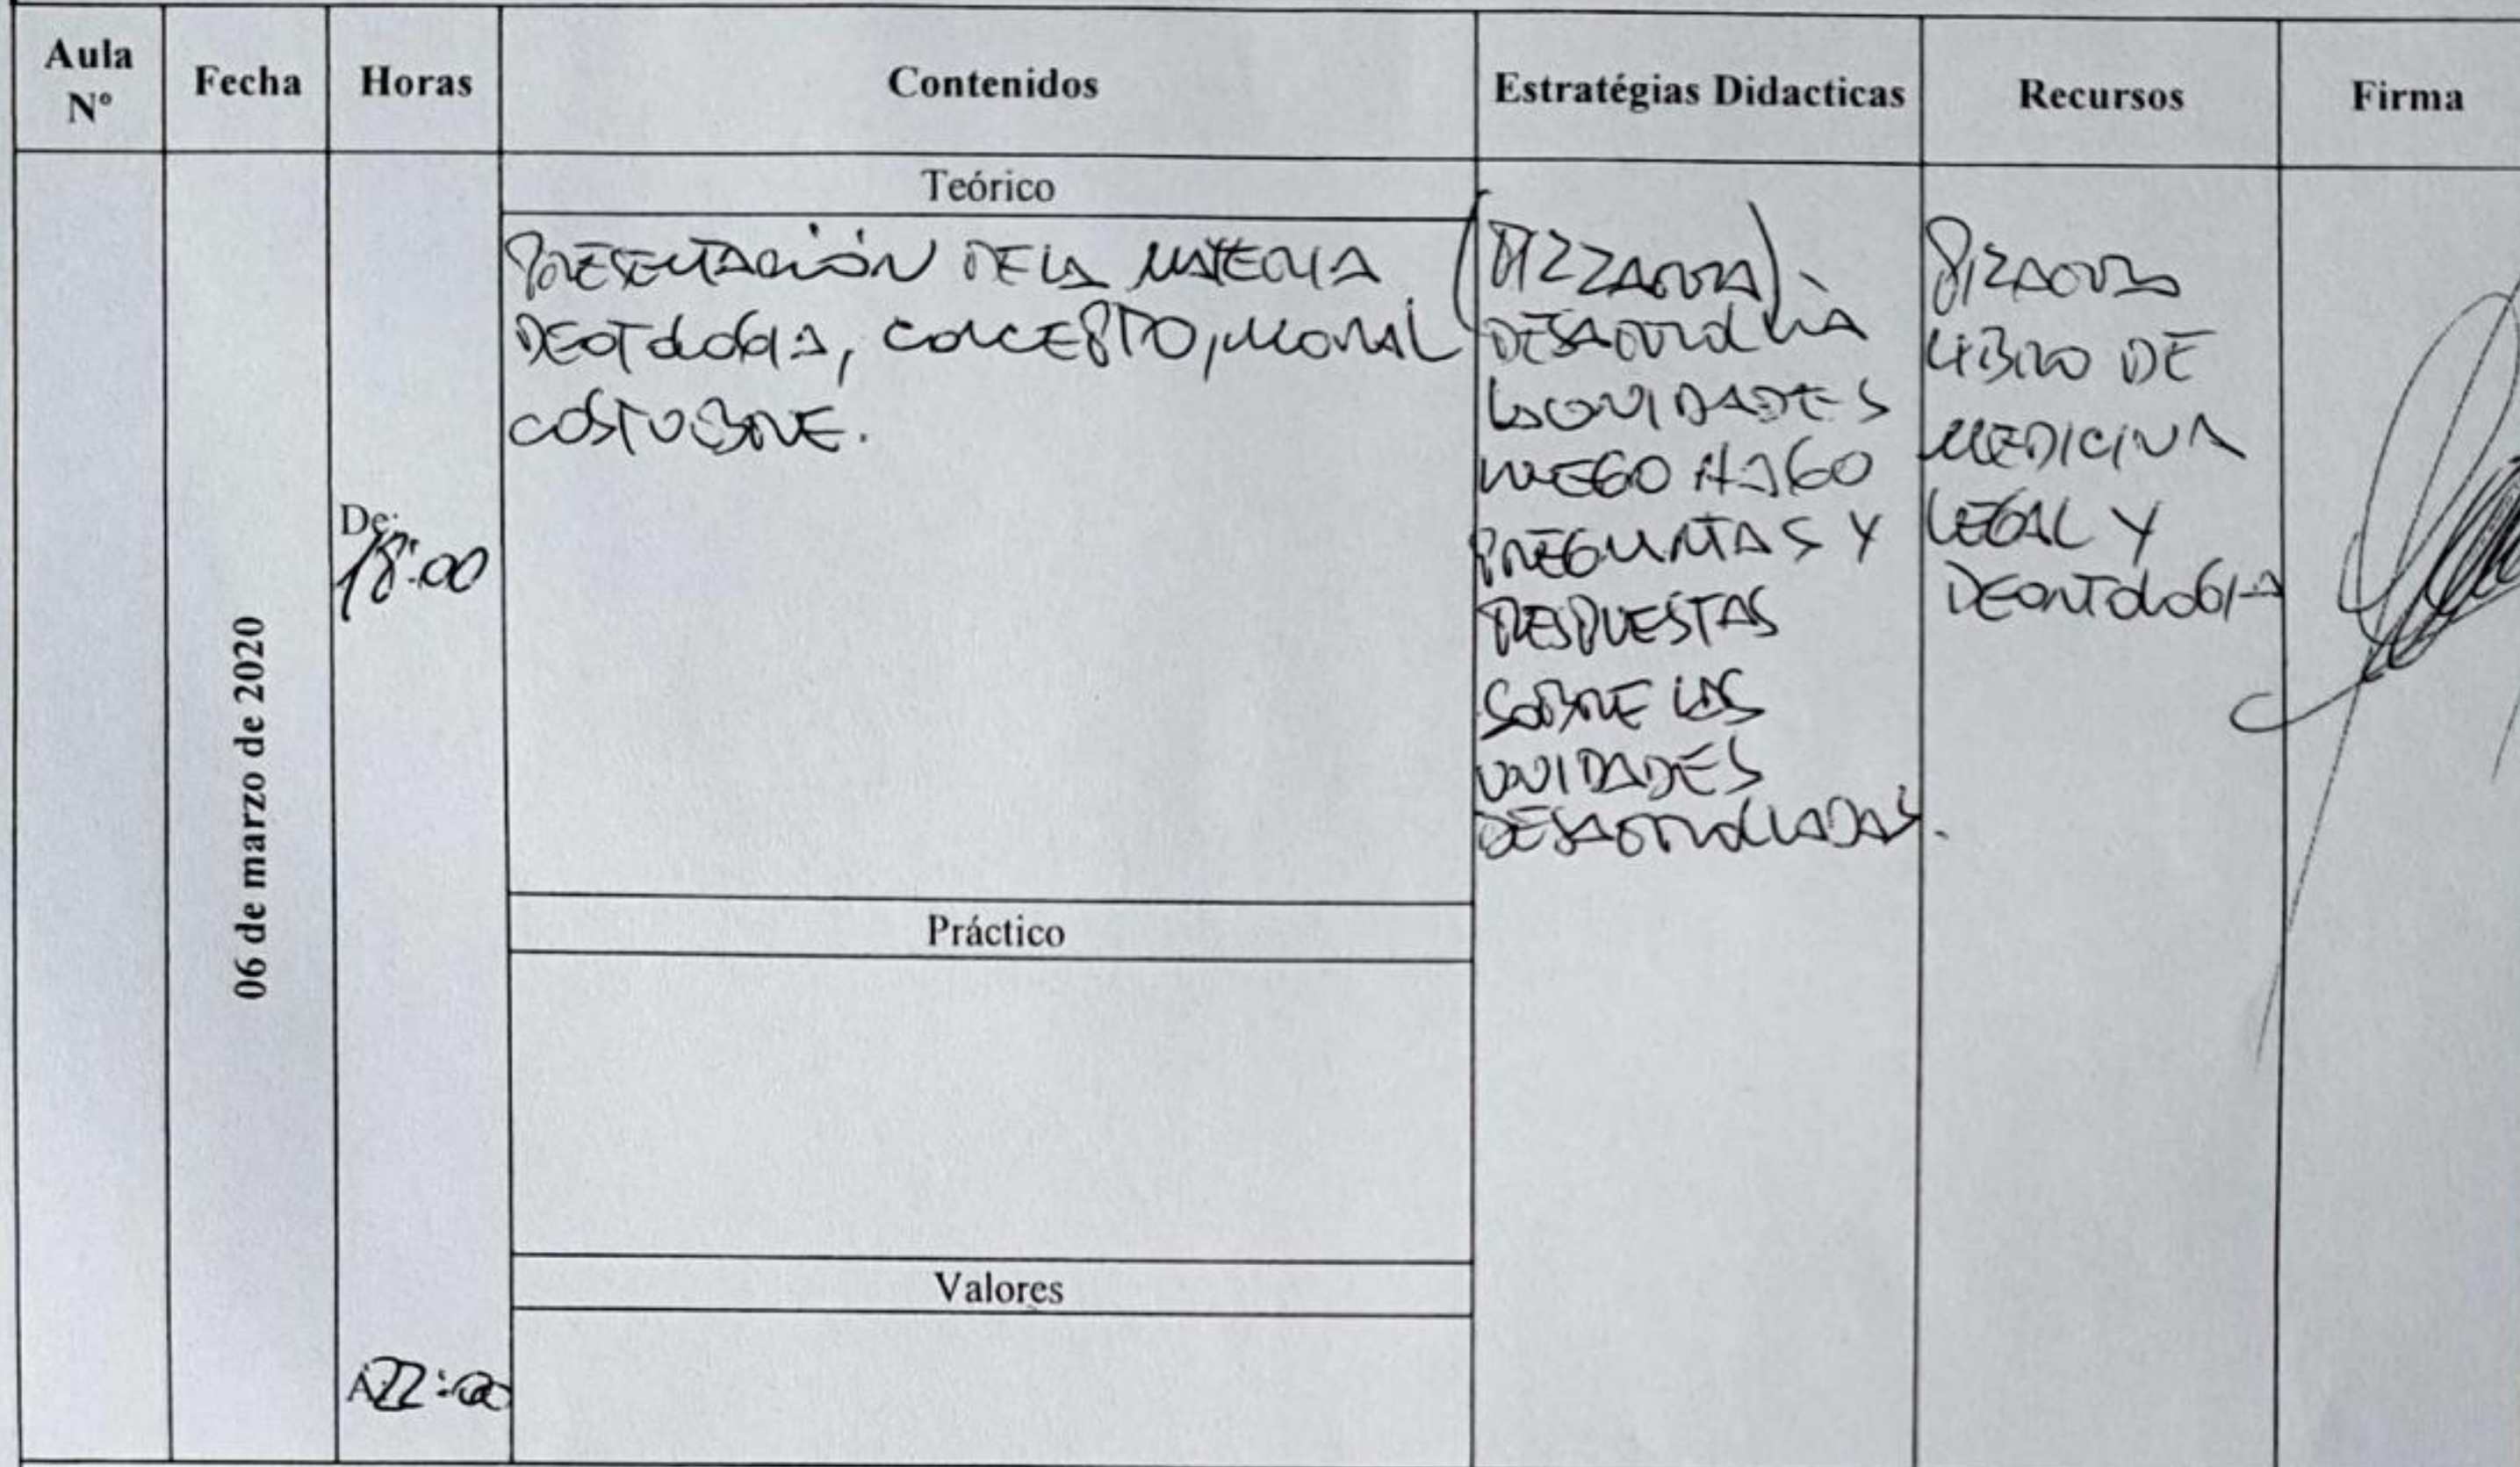 Aula
N°
Fecha
Horas
Contenidos
Estratégias Didacticas
Recursos
Firma
06 de marzo de 2020
De:
18:00
A:22:00
Teórico
PRESENTACIÓN DE LA MATERIA
DEOTOLOGIA, CONCEPTO, MORAL
COSTUBRE.
Práctico
Valores
(PIZZARRA).
DESARROLLA
LAS UNIDADES
LUEGO HAGO
PREGUNTAS Y
RESPUESTAS
SOBRE LAS
UNIDADES
DESARROLLADAS.
PIZARRA
LIBRO DE
MEDICINA
LEGAL Y
DEONTOLOGIA